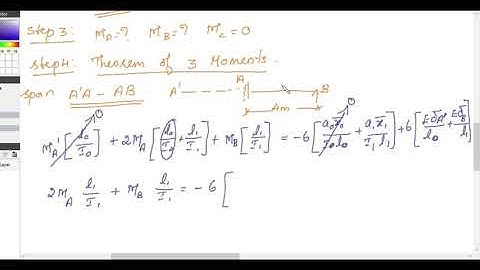 Step 3: MA=? MB=? MC=0
Step 4: Theorem of 3 Moments.
span A'A - AB A' A B
4m
0 0
MA' [l0/I0] + 2MA [l0/I0 + l1/I1] + MB [l1/I1] = -6 [a0x̄0/I0l0 + a1x̄1/I1l1] + 6 [EδA'/l0 + EδB/l1]
2MA l1/I1 + MB l1/I1 = -6 [